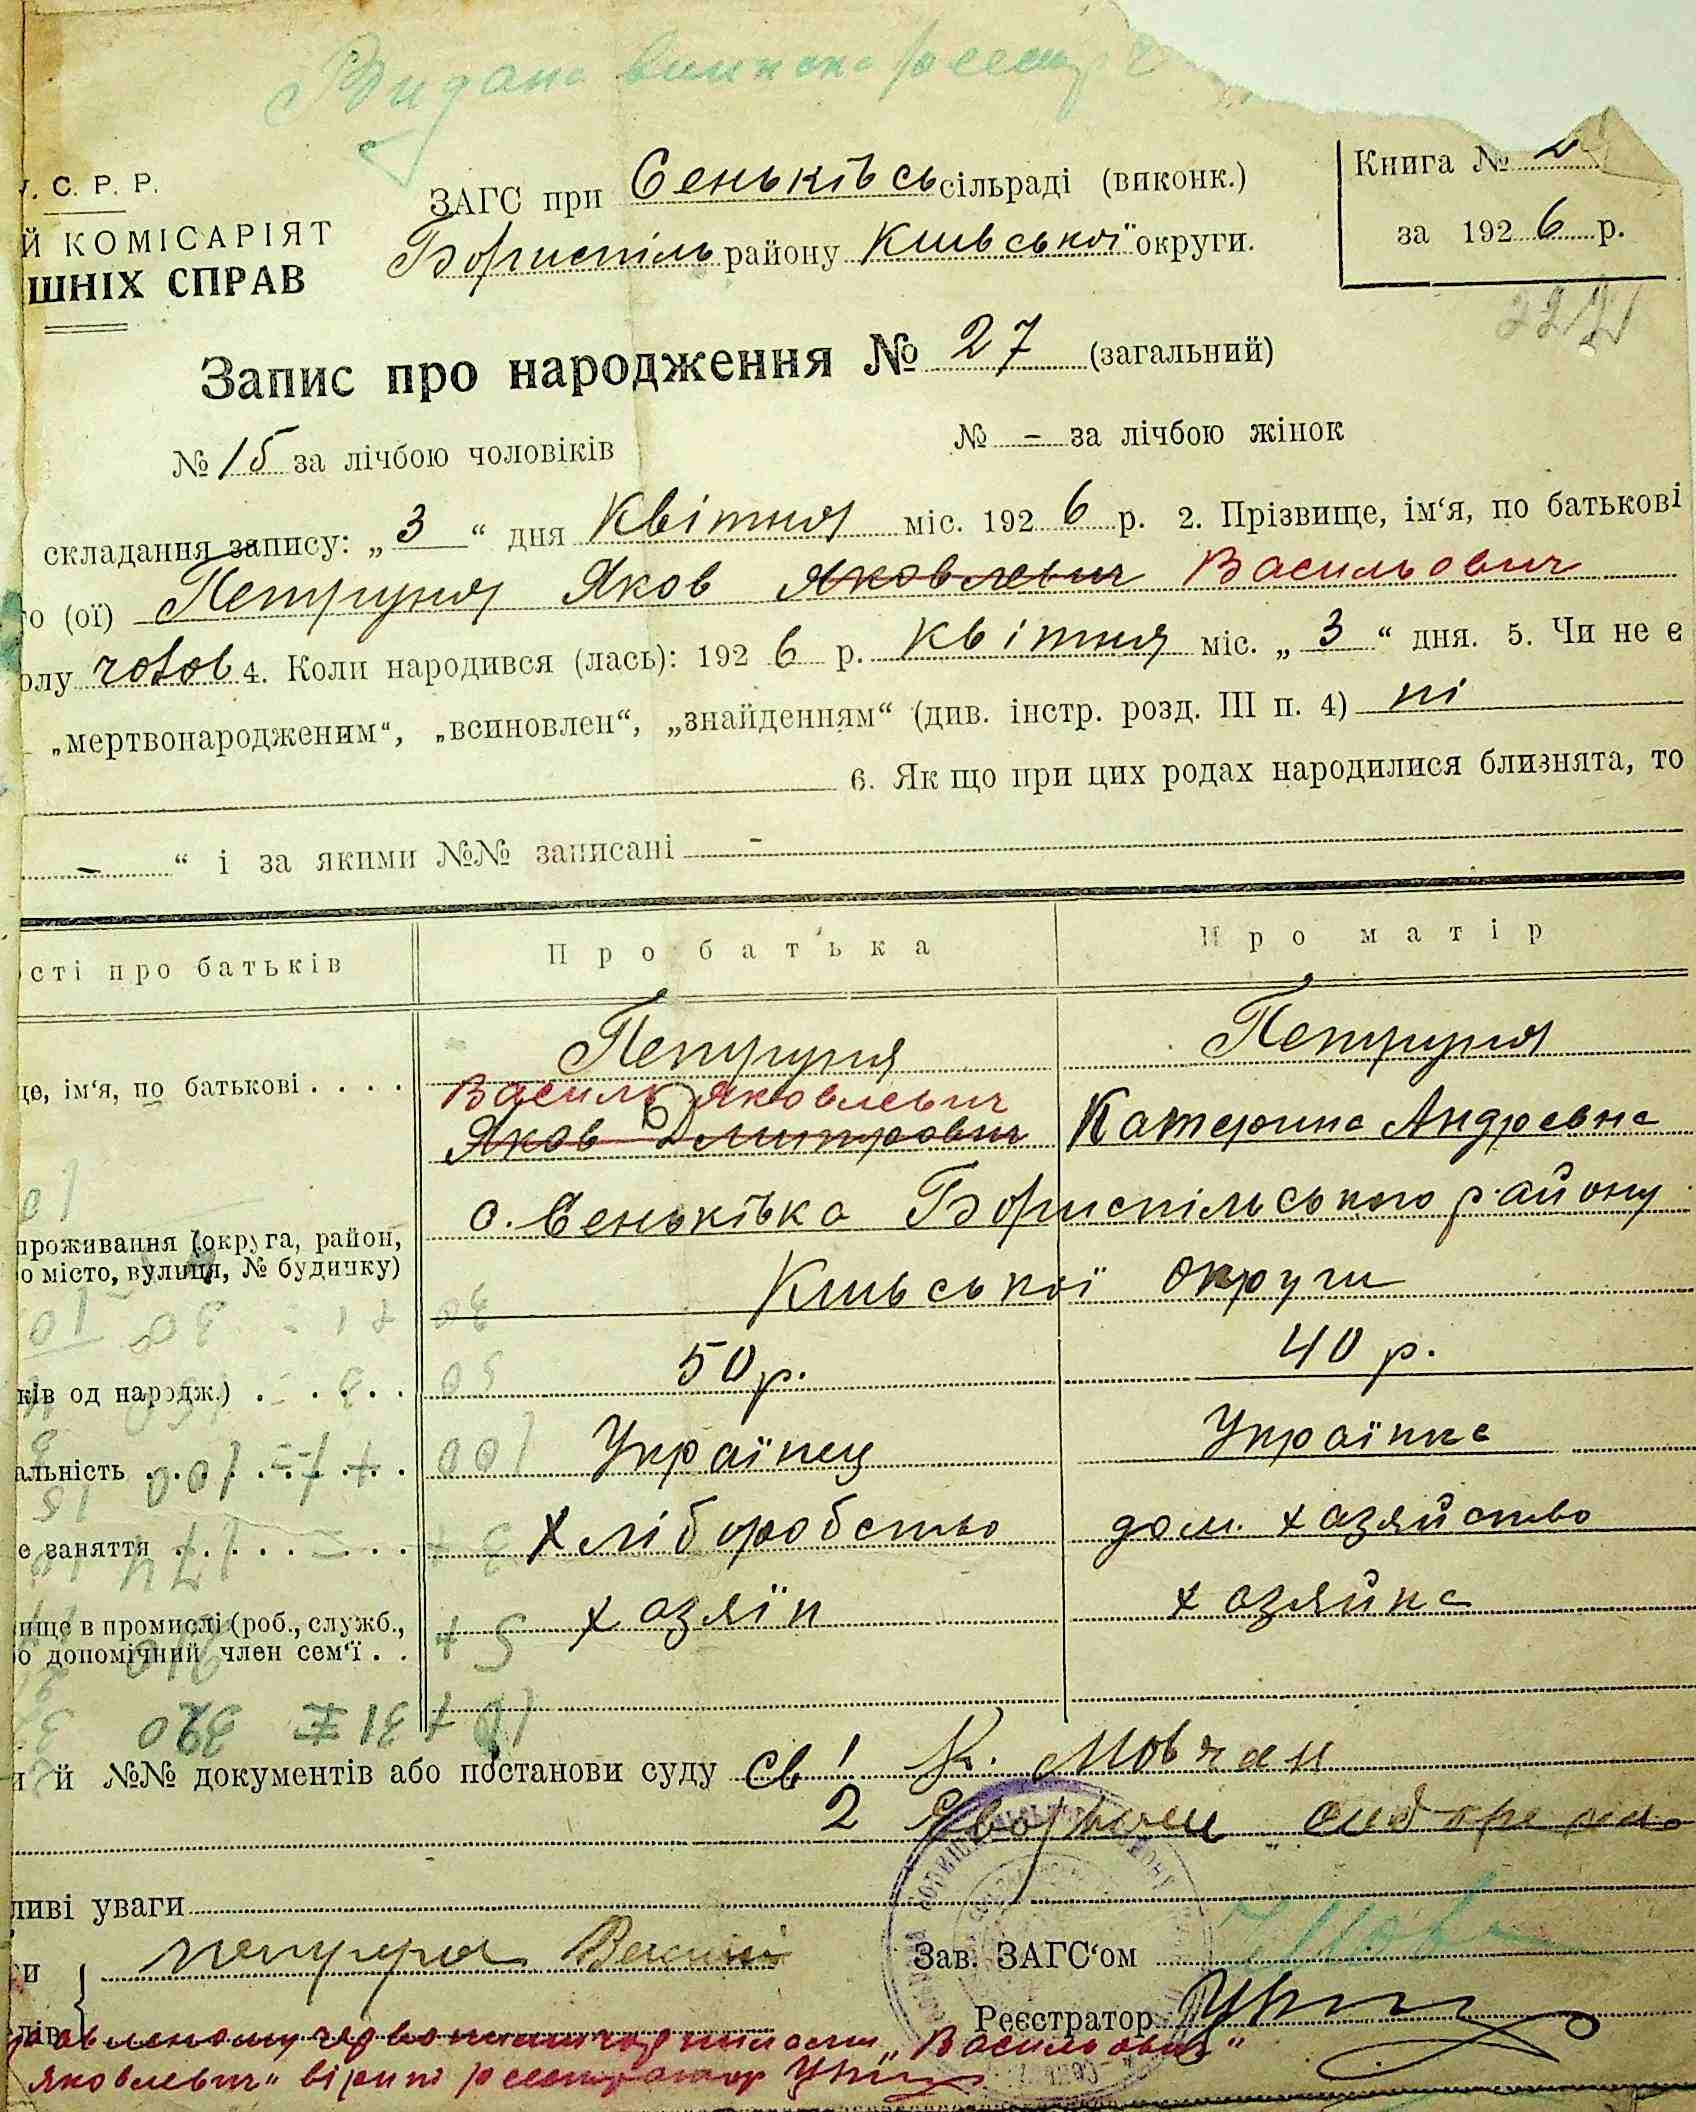 Видана виписка
У. С. Р. Р.
ЗАГС при Сеньківсь сільраді (виконк.)
Книга №
Й КОМІСАРІЯТ
Бориспіль району Київської округи.
за 1926 р.
ШНІХ СПРАВ
Запис про народження № 27 (загальний)
№ 15 за лічбою чоловіків № - за лічбою жінок
складання запису: „3“ дня Квітня міс. 1926 р. 2. Прізвище, ім‘я, по батькові
го (ої) Петруня Яков Яковлевич Васильович
олу чолов 4. Коли народився (лась): 1926 р. Квітня міс. „3“ дня. 5. Чи не є
„мертвонародженим“, „всиновлен“, „знайденням“ (див. інстр. розд. III п. 4) ні
6. Як що при цих родах народилися близнята, то
- “ і за якими №№ записані -
ості про батьків Про батька Про матір
Петруня Петруня
це, ім‘я, по батькові . . . . Василь Яковлевич
Яков Дмитрович Катерина Андреевна
с. Сеньківка Бориспільського району
проживання (округа, район,
о місто, вулиця, № будинку) Київської округи
ків од народж.) . . . . . 50 р. 40 р.
альність . . . . . . . . Українец Українка
е заняття . . . . . . . Хліборобство дом. хазяйство
ище в промислі (роб., служб., хазяїн хазяйка
о допомічний член сем‘ї . .
й №№ документів або постанови суду Св 1 К. Мовчан
2
ливі уваги
и Петруня Зав. ЗАГС‘ом
Реєстратор
„Васильович“
Яковлевич“ вірити реєстратор